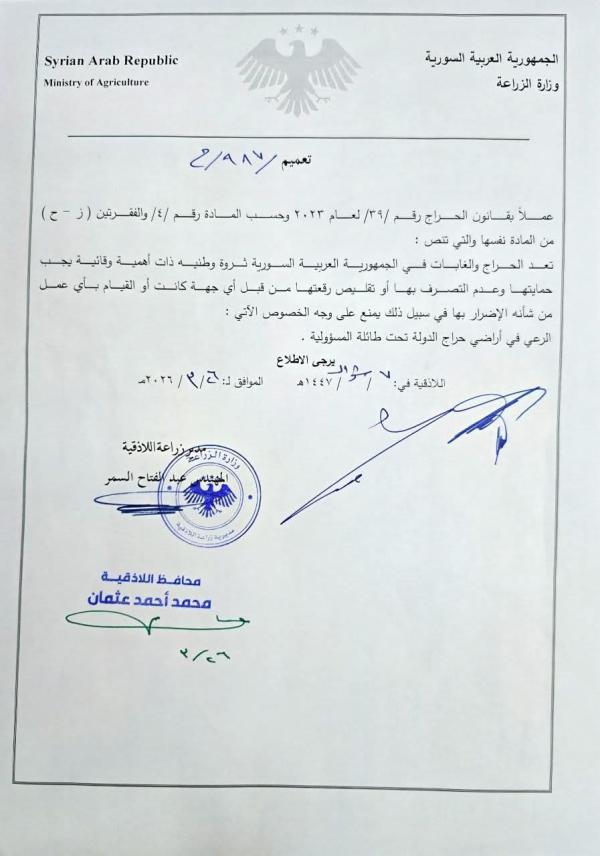 Syrian Arab Republic
Ministry of Agriculture
الجمهورية العربية السورية
وزارة الزراعة
تعميم /٩٨٧/ح
عمـــلاً بقـانون الحـراج رقـم /٣٩/ لعـام ٢٠٢٣ وحسب المـادة رقـم /٤/ والفقـرتين ( ز – ح )
من المادة نفسها والتي تنص :
تعـد الحـراج والغابـات فـي الجمهوريـة العربيـة السـورية ثـروة وطنيـه ذات أهميـة وقائيـة يجـب
حمايتهـا وعـدم التصـرف بهـا أو تقلـيص رقعتهـا مـن قبـل أي جهـة كانـت أو القيـام بـأي عمـل
من شأنه الإضرار بها في سبيل ذلك يمنع على وجه الخصوص الآتي :
الرعي في أراضي حراج الدولة تحت طائلة المسؤولية .
يرجى الاطلاع
اللاذقية في: ٧/شوال/١٤٤٧هـ الموافق لـ: ٢٦/٣/٢٠٢٦مـ
مدير زراعة اللاذقية
المهندس عبد الفتاح السمر
وزارة الزراعة
مديرية زراعة اللاذقية
محافظ اللاذقية
محمد أحمد عثمان
٣/٢٦